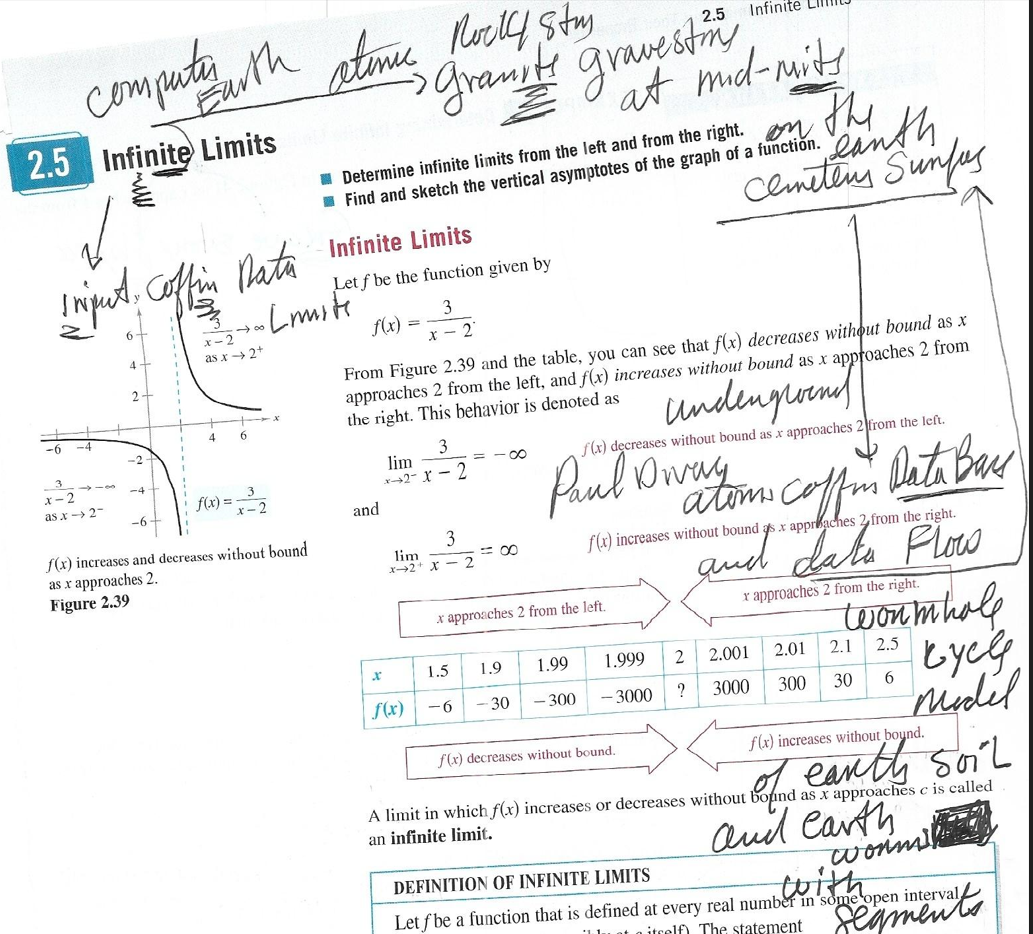 2.5
Infinite Limits
computer Earth atomic Rocky
granite
at mid-nits
2.5 Infinite Limits
on the
earth
cemetery
■ Determine infinite limits from the left and from the right.
■ Find and sketch the vertical asymptotes of the graph of a function.
Input, coffin Data
Limits
y
6
4
2
-2
-4
-6
-6 -4 4 6 x
3/(x − 2) → ∞
as x → 2⁺
3/(x − 2) → −∞
as x → 2⁻
f(x) = 3/(x − 2)
f(x) increases and decreases without bound
as x approaches 2.
Figure 2.39
Infinite Limits
Let f be the function given by
f(x) = 3/(x − 2).
From Figure 2.39 and the table, you can see that f(x) decreases without bound as x
approaches 2 from the left, and f(x) increases without bound as x approaches 2 from
the right. This behavior is denoted as
underground
lim x→2⁻ 3/(x − 2) = −∞
f(x) decreases without bound as x approaches 2 from the left.
Paul
atoms coffin Data Base
and
lim x→2⁺ 3/(x − 2) = ∞
f(x) increases without bound as x approaches 2 from the right.
and data Flow
x approaches 2 from the left.
x approaches 2 from the right.
wormhole
cycle
Model
x 1.5 1.9 1.99 1.999 2 2.001 2.01 2.1 2.5
f(x) −6 −30 −300 −3000 ? 3000 300 30 6
f(x) decreases without bound.
f(x) increases without bound.
of earth soil
A limit in which f(x) increases or decreases without bound as x approaches c is called
an infinite limit.
and earth
worms
with
segments
DEFINITION OF INFINITE LIMITS
Let f be a function that is defined at every real number in some open interval
itself). The statement